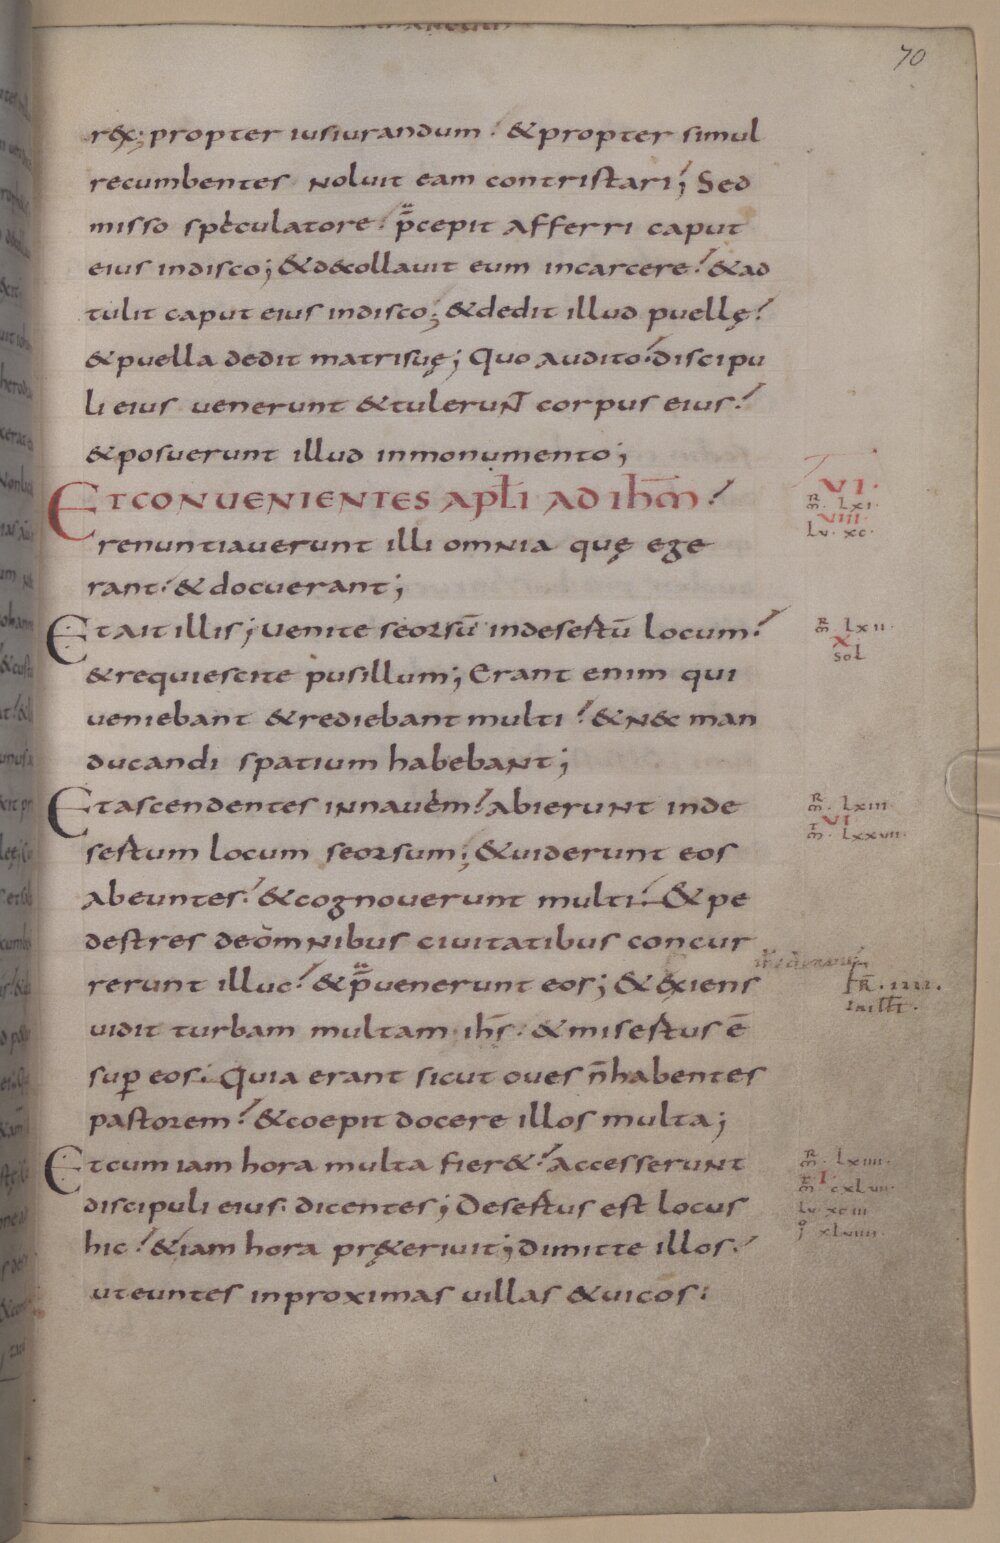 70
rex; propter iusiurandum. & propter simul
recumbentes noluit eam contristari; Sed
misso speculatore p̄cepit afferri caput
eius indisco; & decollauit eum incarcere. & ad
tulit caput eius indisco; & dedit illud puellę.
& puella dedit matrisuę; Quo audito. discipu
li eius uenerunt & tulerunt corpus eius.
& posuerunt illud inmonumento;
ET CONUENIENTES APL̄I AD IH̄M.
VI.
renuntiauerunt illi omnia quę ege
M̄R. LXI.
VIII
LU. XC.
rant. & docuerant;
Et ait illis; Uenite seorsū indesertū locum.
M̄R. LXII.
X
SOL
& requiescite pusillum; Erant enim qui
ueniebant & rediebant multi. & n& man
ducandi spatium habebant;
Et ascendentes innauem. abierunt inde
M̄R. LXIII.
VI
M̄T. LXXVII.
sertum locum seorsum; & uiderunt eos
abeuntes. & cognouerunt multi. & pe
destres deomnibus ciuitatibus concur
rerunt illuc. & p̄uenerunt eos; & exiens
FR̄. IIII.
uidit turbam multam ih̄s. & misertus ē
sup eos. Quia erant sicut oues n̄habentes
pastorem. & coepit docere illos multa;
Et cum iam hora multa fier&. accesserunt
M̄R. LXIIII.
I
M̄T. CXLVII.
LU. XCIII
IO XLVIIII
discipuli eius. dicentes; Desertus est locus
hic. & iam hora pręteriuit; dimitte illos.
ut euntes inproximas uillas & uicos: